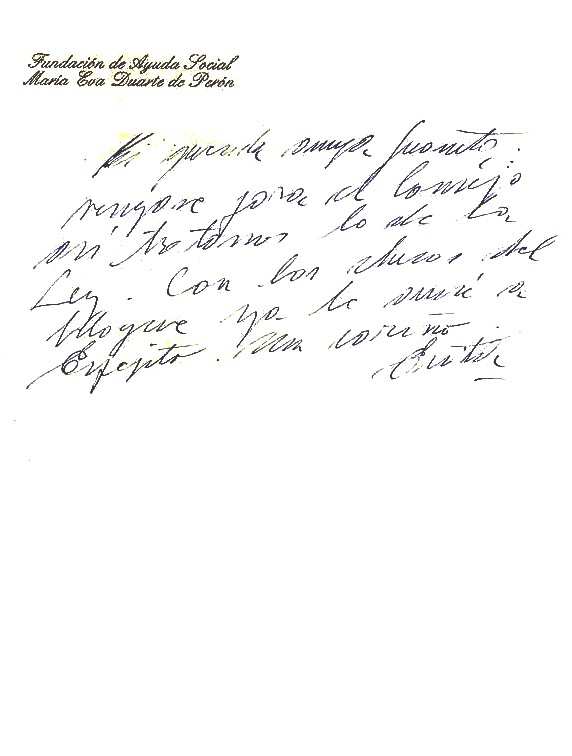 Fundación de Ayuda Social
María Eva Duarte de Perón
Mi querida amiga Juanita:
vengase para el Consejo
asi tratamos lo de la
Ley. Con los chicos del
bloque ya le avisé a
Espejito. Un cariño.
Evita